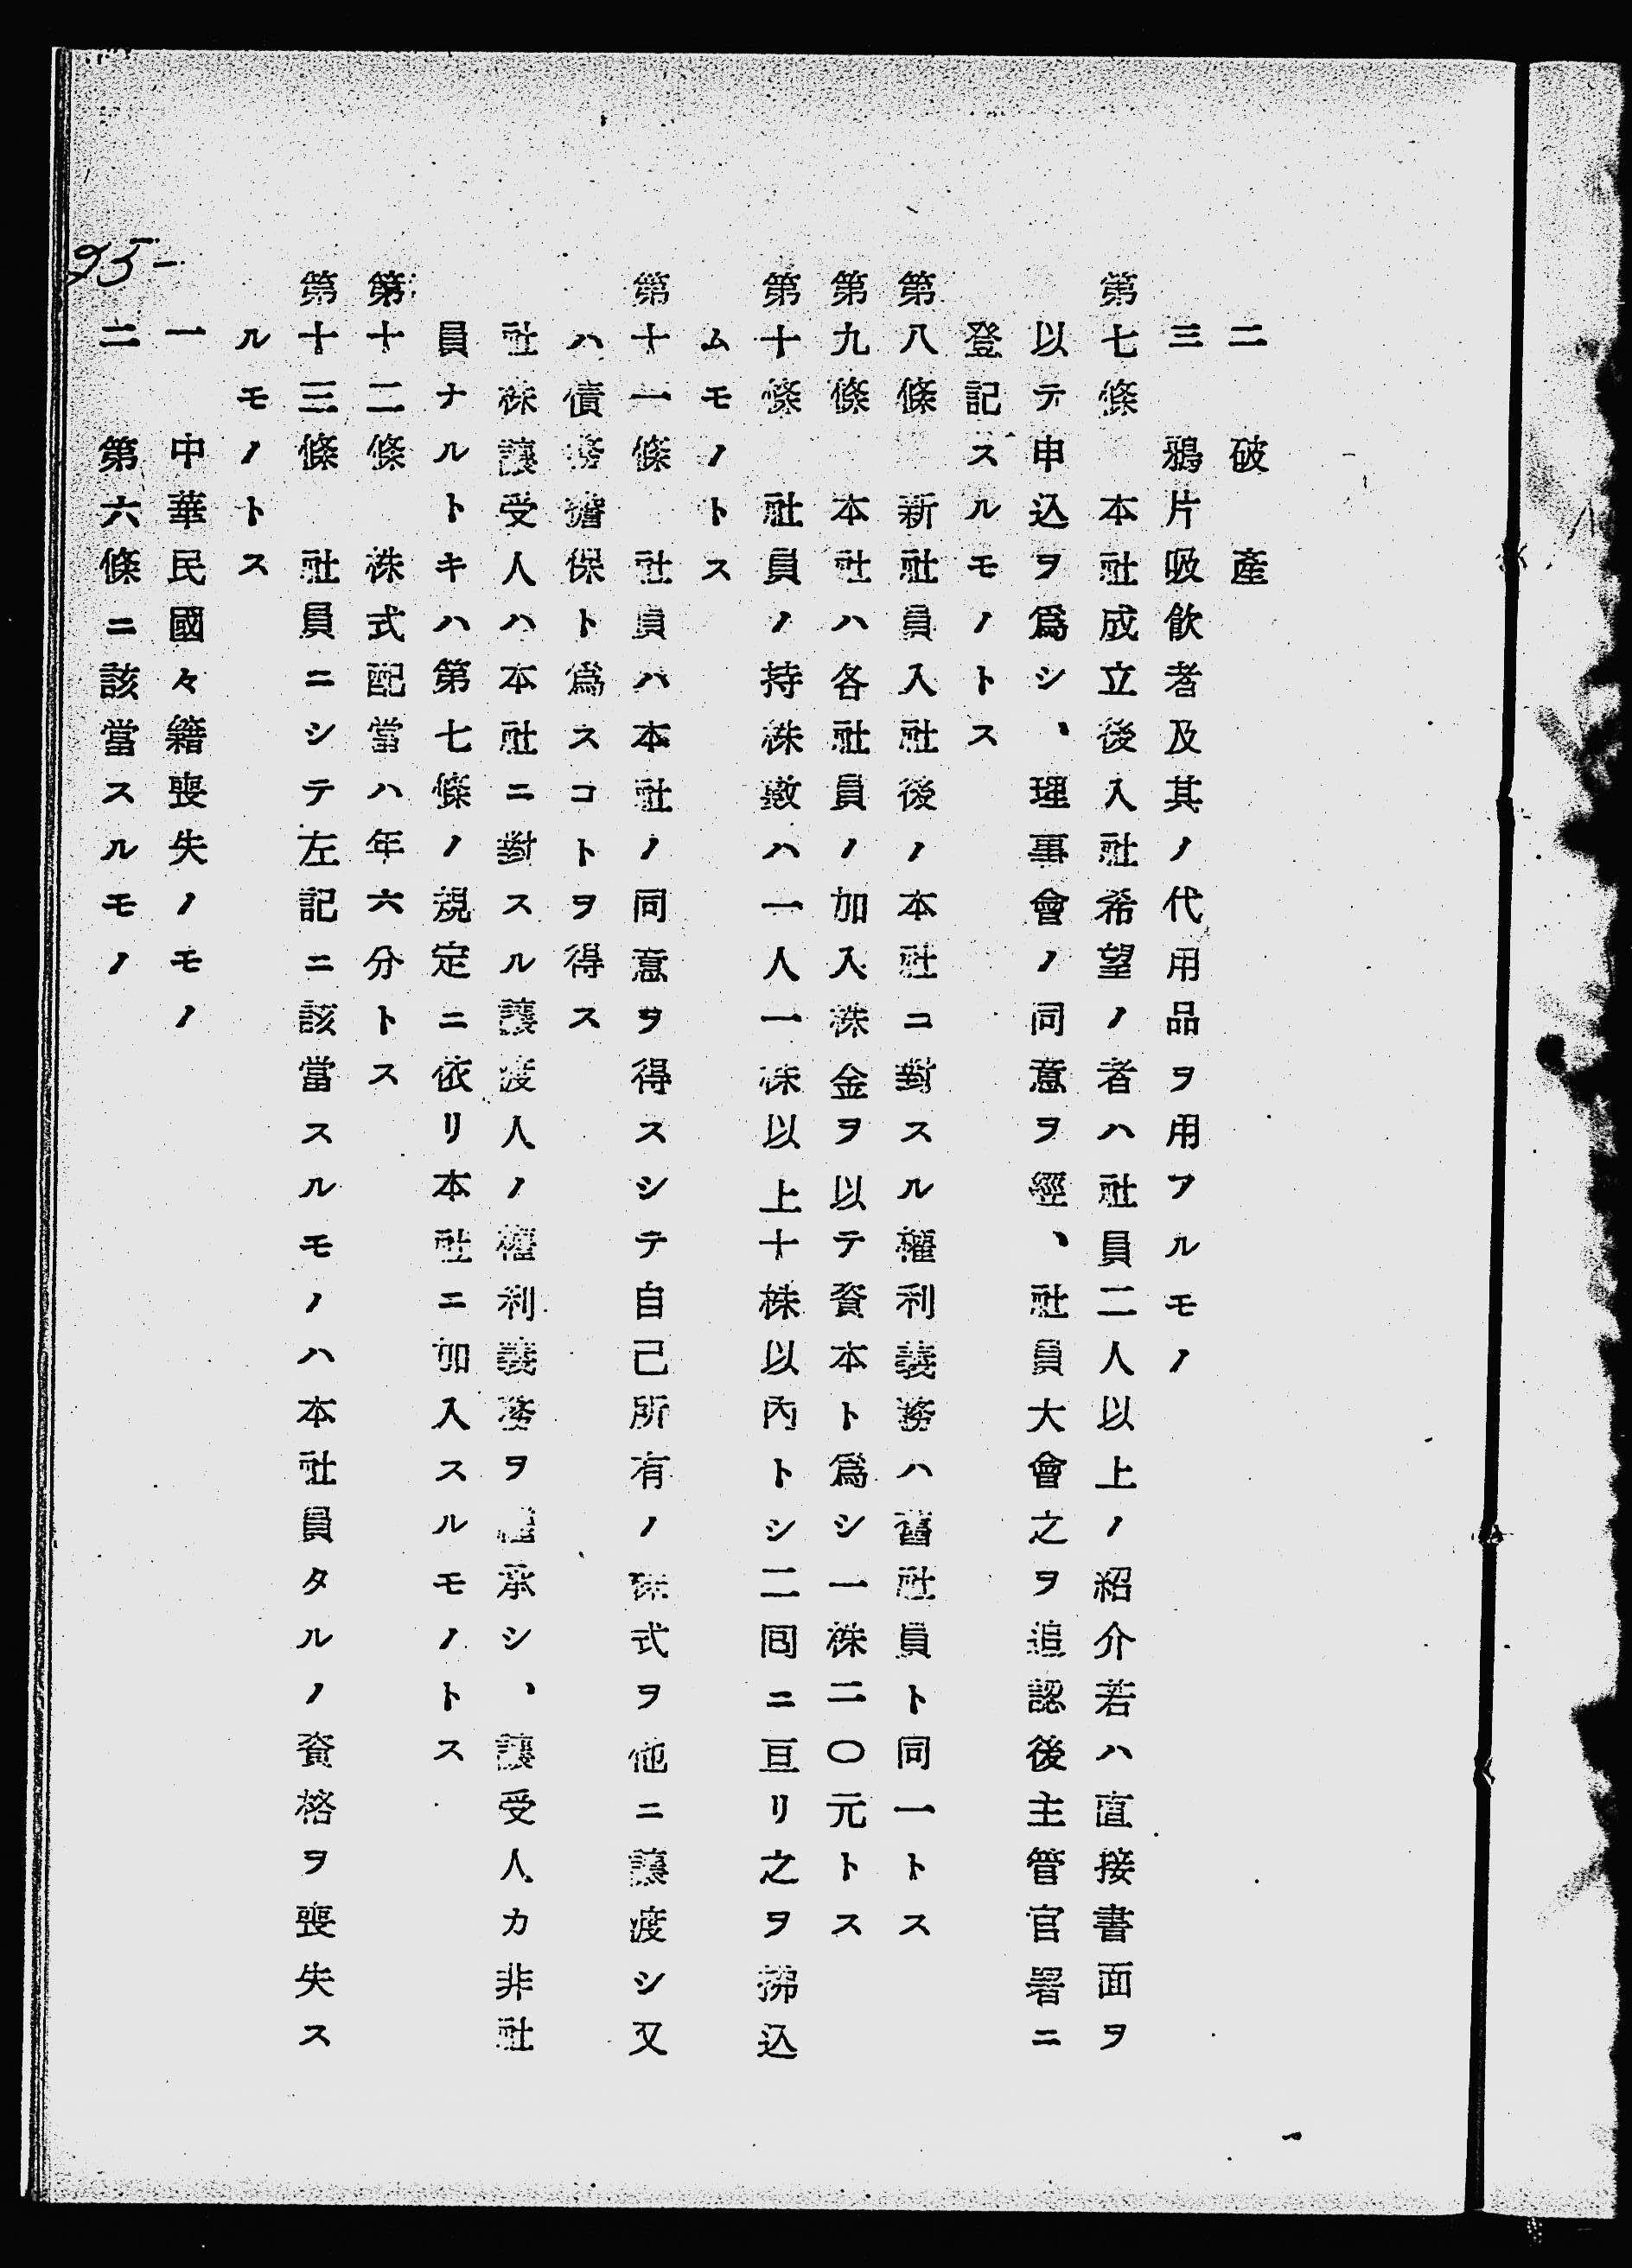 二　破　産
三　鴉片吸飲者及其ノ代用品ヲ用フルモノ
第七條　本社成立後入社希望ノ者ハ社員二人以上ノ紹介若ハ直接書面ヲ
以テ申込ヲ爲シ、理事會ノ同意ヲ經、社員大會之ヲ追認後主管官署ニ
登記スルモノトス
第八條　新社員入社後ノ本社ニ對スル權利義務ハ舊社員ト同一トス
第九條　本社ハ各社員ノ加入株金ヲ以テ資本ト爲シ一株二〇元トス
第十條　社員ノ持株數ハ一人一株以上十株以内トシ二回ニ亘リ之ヲ拂込
ムモノトス
第十一條　社員ハ本社ノ同意ヲ得スシテ自己所有ノ株式ヲ他ニ讓渡シ又
ハ債務擔保ト爲スコトヲ得ス
社株讓受人ハ本社ニ對スル讓渡人ノ權利義務ヲ繼承シ、讓受人カ非社
員ナルトキハ第七條ノ規定ニ依リ本社ニ加入スルモノトス
第十二條　株式配當ハ年六分トス
第十三條　社員ニシテ左記ニ該當スルモノハ本社員タルノ資格ヲ喪失ス
ルモノトス
一　中華民國々籍喪失ノモノ
二　第六條ニ該當スルモノ
95-